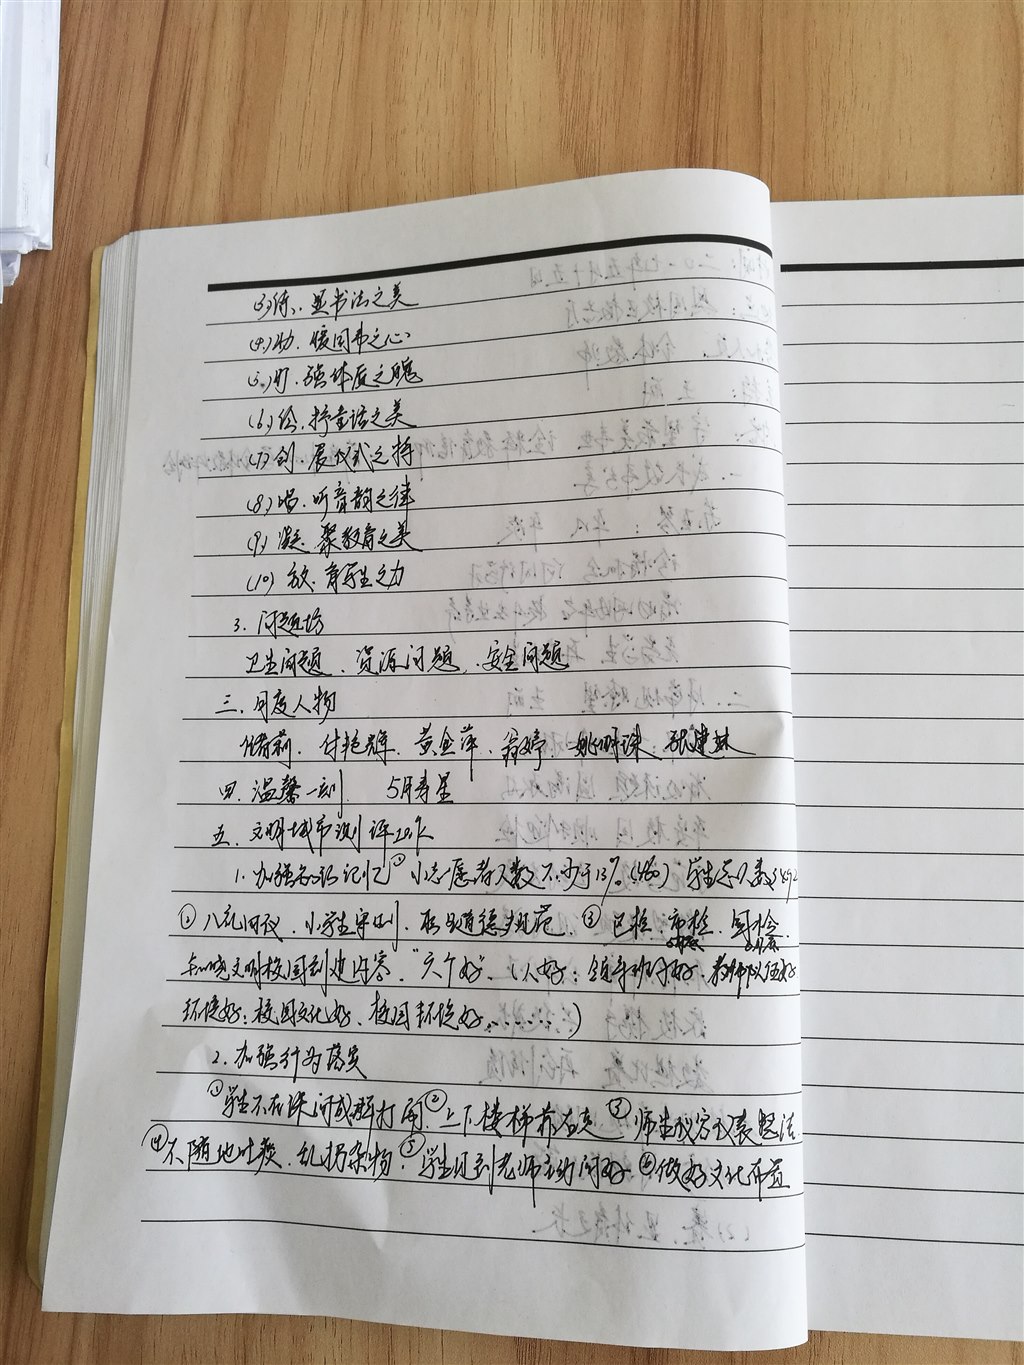 (3)练、显书法之美
(4)幼、暖图书之心
(5)叮、强体质之魄
(6)绘、抒童话之美
(7)创、展仪式之特
(8)唱、听音韵之律
(9)凝、聚教育之美
(10)放、育学生之力
3. 问题坊
卫生问题、资源问题、安全问题
三、月度人物
付艳辉、黄金萍、翁婷、姚明珠、张建妹
四、温馨一刻 5月寿星
五、文明城市测评
1. 加强知识记忆 ② 小志愿者人数不少于13% (460) 学生总人数
① 八礼四仪、小学生守则、职业道德规范、③ 区检、市检、国检
知晓文明校园创建内容"六个好" (人好: 领导班子好、教师队伍好
环境好: 校园文化好、校园环境好、……)
2. 加强行为落实
① 学生不在课间成群打闹 ② 上下楼梯靠右走 ③ 师生仪容仪表整洁
④ 不随地吐痰、乱扔杂物 ⑤ 学生见到老师主动问好 ⑥ 做好文化布置